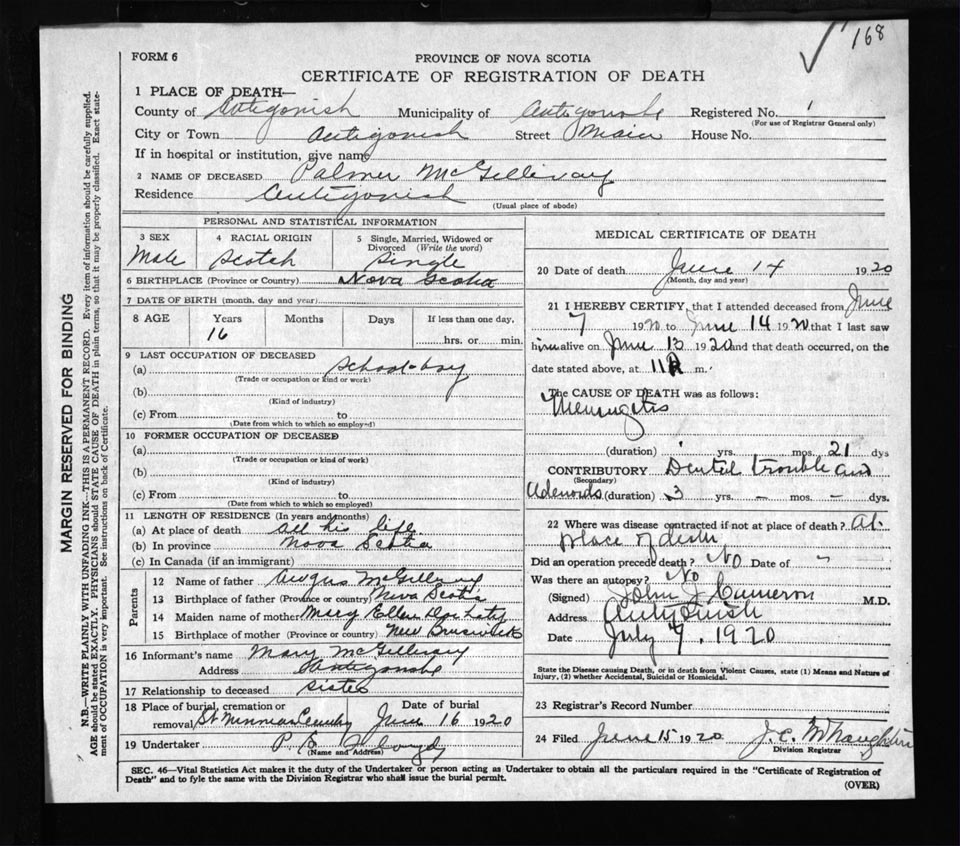 168
FORM 6
PROVINCE OF NOVA SCOTIA
CERTIFICATE OF REGISTRATION OF DEATH
1 PLACE OF DEATH—
County of Antigonish Municipality of Antigonishe Registered No.
(For use of Registrar General only)
City or Town Antigonish Street Main House No.
If in hospital or institution, give name
2 NAME OF DECEASED Palmer McGillivray
Residence Antigonish
(Usual place of abode)
PERSONAL AND STATISTICAL INFORMATION
3 SEX Male
4 RACIAL ORIGIN Scotch
5 Single, Married, Widowed or Divorced (Write the word) Single
6 BIRTHPLACE (Province or Country) Nova Scotia
7 DATE OF BIRTH (month, day and year)
8 AGE Years Months Days If less than one day,
16 hrs. or min.
9 LAST OCCUPATION OF DECEASED
(a) School-boy
(Trade or occupation or kind or work)
(b)
(Kind of industry)
(c) From to
(Date from which to which so employed)
10 FORMER OCCUPATION OF DECEASED
(a)
(Trade or occupation or kind of work)
(b)
(Kind of industry)
(c) From to
(Date from which to which so employed)
11 LENGTH OF RESIDENCE (In years and months)
(a) At place of death All his life
(b) In province Nova Scotia
(c) In Canada (if an immigrant)
Parents
12 Name of father Angus McGillivray
13 Birthplace of father (Province or country) Nova Scotia
14 Maiden name of mother Mary Ellen
15 Birthplace of mother (Province or country) New Brunswick
16 Informant's name Mary McGillivray
Address Antigonishe
17 Relationship to deceased sister
18 Place of burial, cremation or Date of burial
removal St Ninnian Cemetry June 16 1920
19 Undertaker P.
(Name and Address)
MEDICAL CERTIFICATE OF DEATH
20 Date of death June 14 1920
(Month, day and year)
21 I HEREBY CERTIFY, that I attended deceased from June
7 1920 to June 14 1920 that I last saw
him alive on June 13 1920 and that death occurred, on the
date stated above, at 11 m.
The CAUSE OF DEATH was as follows:
Meningitis
(duration) yrs. mos. 21 dys
CONTRIBUTORY Dental trouble and
(Secondary)
Adenoids (duration) 3 yrs. — mos. — dys.
22 Where was disease contracted if not at place of death? At
place of death
Did an operation precede death? No Date of "
Was there an autopsy? No
(Signed) John J Cameron M.D.
Address Antigonish
Date July 7, 1920
State the Disease causing Death, or in death from Violent Causes, state (1) Means and Nature of
Injury, (2) whether Accidental, Suicidal or Homicidal.
23 Registrar's Record Number
24 Filed June 15 1920 J.C. McNaughton
Division Registrar
SEC. 46—Vital Statistics Act makes it the duty of the Undertaker or person acting as Undertaker to obtain all the particulars required in the "Certificate of Registration of
Death" and to fyle the same with the Division Registrar who shall issue the burial permit.
(OVER)
MARGIN RESERVED FOR BINDING
N.B.—WRITE PLAINLY WITH UNFADING INK—THIS IS A PERMANENT RECORD. Every item of information should be carefully supplied.
AGE should be stated EXACTLY. PHYSICIANS should STATE CAUSE OF DEATH in plain terms, so that it may be properly classified. Exact statement of OCCUPATION is very important. See instructions on back of Certificate.